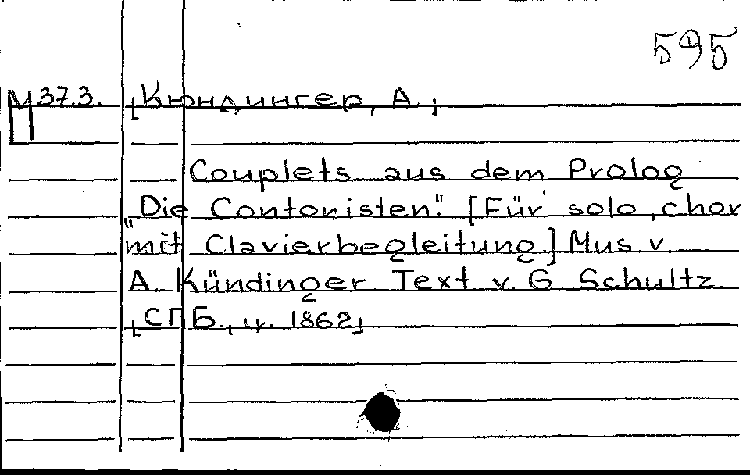 595
М37.3. [Кюндингер, А.]
Couplets aus dem Prolog
"Die Contoristen". [Für solo, chor
mit Clavierbegleitung] Mus v
A. Kündinger Text v. G Schultz
[СПБ., ц. 1862]